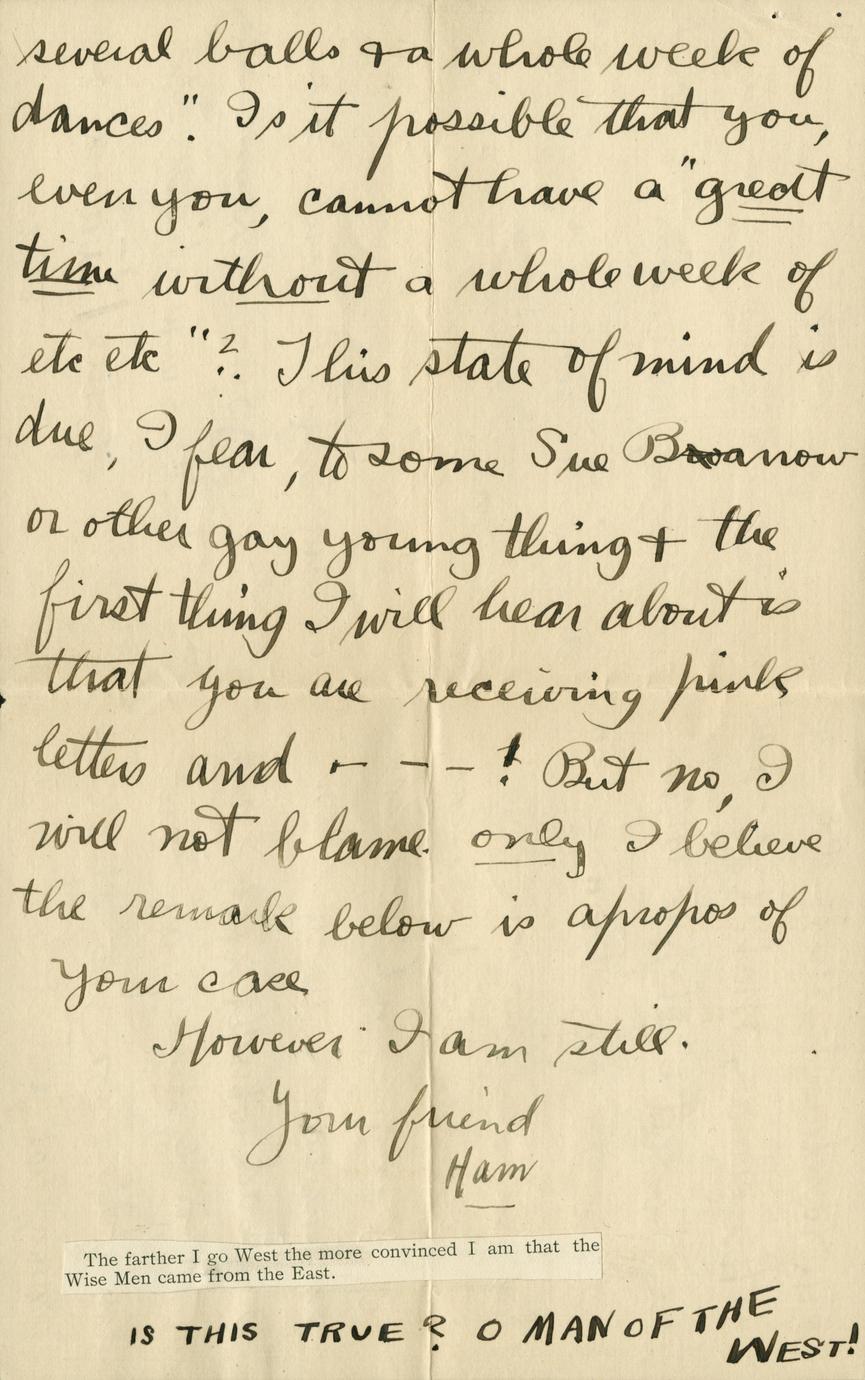 several balls & a whole week of
dances". Is it possible that you,
even you, cannot have a "great
time without a whole week of
etc etc "? This state of mind is
due, I fear, to some Sue
or other gay young thing & the
first thing I will hear about is
that you are receiving pink
letters and - - - ! But no, I
will not blame. only I believe
the remark below is apropos of
your case
However I am still.
Your friend
Ham
The farther I go West the more convinced I am that the
Wise Men came from the East.
IS THIS TRUE? O MAN OF THE
WEST!